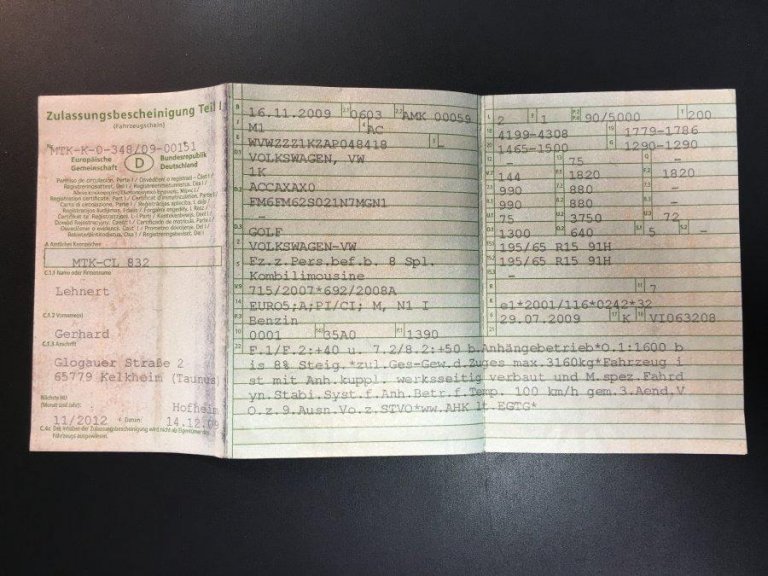 Zulassungsbescheinigung Teil I
(Fahrzeugschein)
MTK-K-0-348/09-00151
Europäische
Gemeinschaft
D
Bundesrepublik
Deutschland
A Amtliches Kennzeichen
MTK-CL 832
C.1.1 Name oder Firmenname
Lehnert
C.1.2 Vorname(n)
Gerhard
C.1.3 Anschrift
Glogauer Straße 2
65779 Kelkheim (Taunus
Nächste HU
(Monat und Jahr)
Hofheim
11/2012
Datum
14.12.09
C.4c Der Inhaber der Zulassungsbescheinigung wird nicht als Eigentümer des
Fahrzeugs ausgewiesen.
B 16.11.2009 2.1 0603 2.2 AMK 00059
M1 4 AC
WVWZZZ1KZAP048418 L
VOLKSWAGEN, VW
1K
ACCAXAX0
FM6FM62S021N7MGN1
-
GOLF
VOLKSWAGEN-VW
Fz.z.Pers.bef.b. 8 Spl.
Kombilimousine
715/2007*692/2008A
EURO5;A;PI/CI; M, N1 I
Benzin
0001 35A0 1390
2 1 90/5000 200
4199-4308 1779-1786
1465-1500 1290-1290
- 75 -
144 1820 1820
990 880 -
990 880 -
75 3750 72
1300 640 5 -
195/65 R15 91H
195/65 R15 91H
-
7
e1*2001/116*0242*32
29.07.2009 K VI063208
F.1/F.2:+40 u. 7.2/8.2:+50 b.Anhängebetrieb*O.1:1600 b
is 8% Steig.*zul.Ges-Gew.d.Zuges max.3160kg*Fahrzeug i
st mit Anh.kuppl. werksseitig verbaut und M.spez.Fahrd
yn.Stabi.Syst.f.Anh.Betr.f.Temp. 100 km/h gem.3.Aend.V
O.z.9.Ausn.Vo.z.STVO*ww.AHK lt.EGTG*